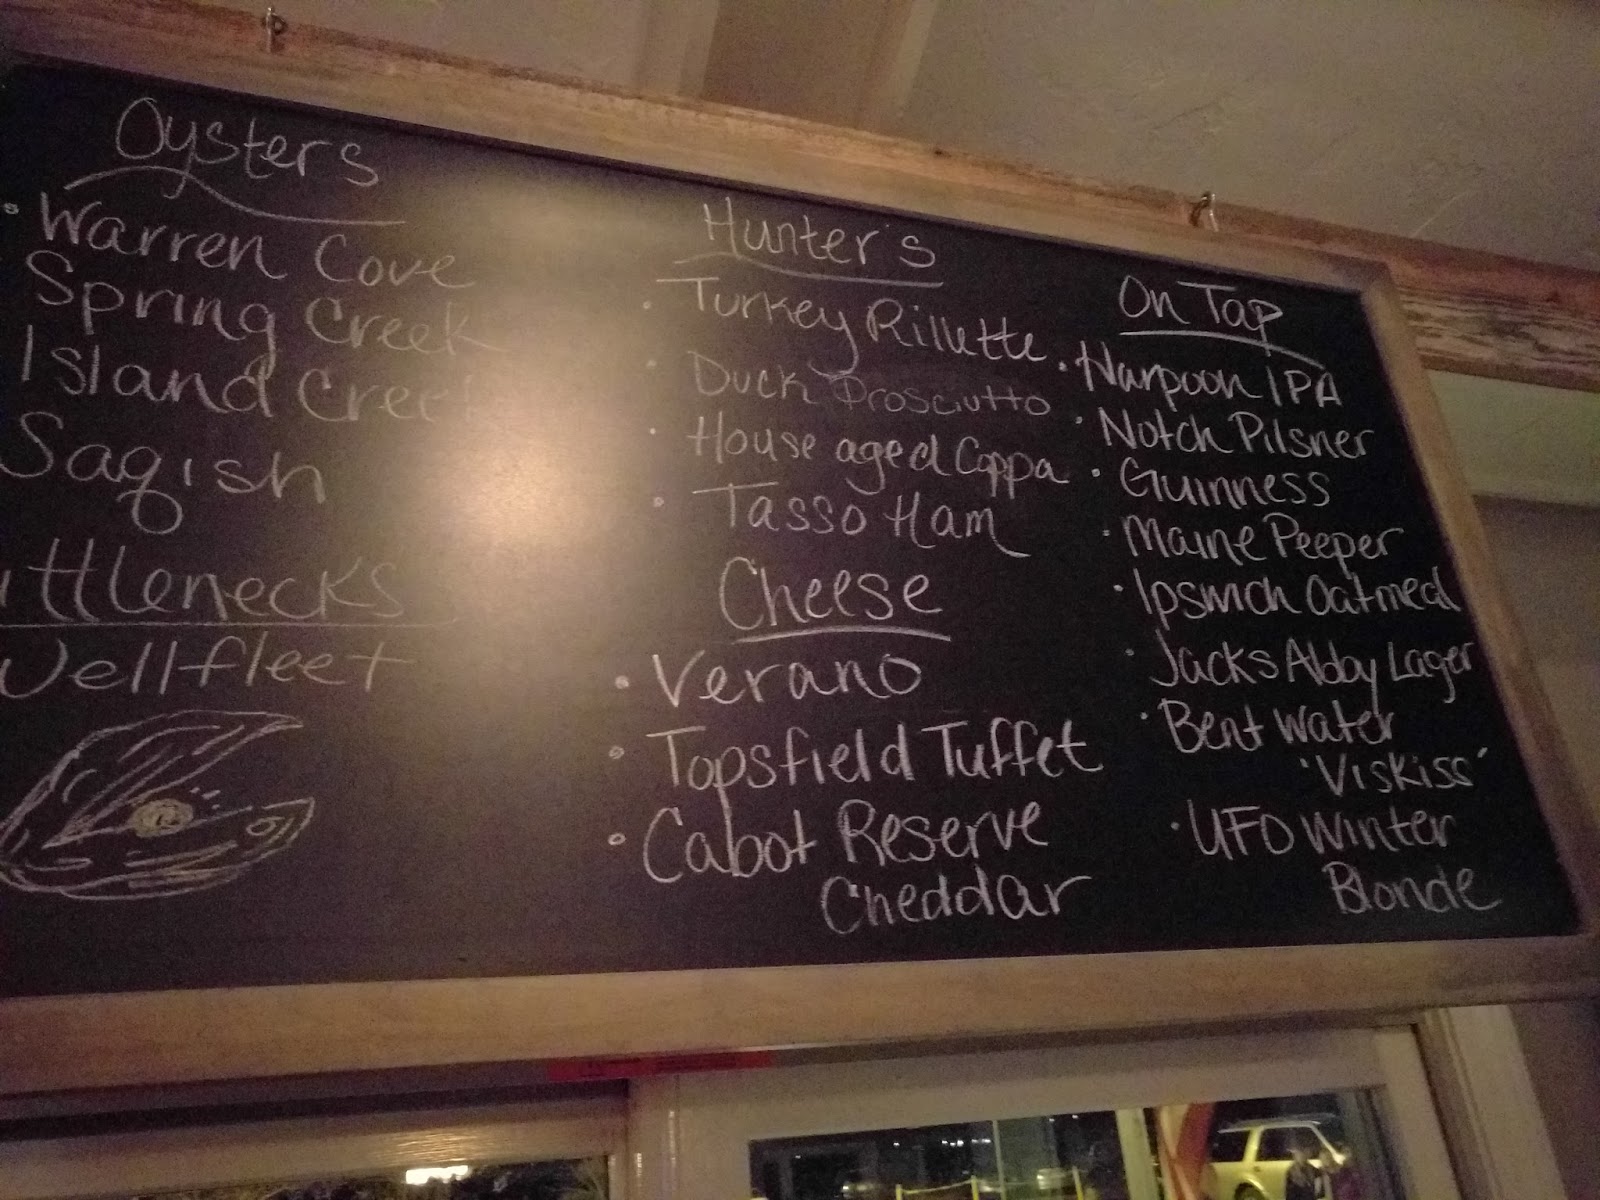 Oysters
Warren Cove
Spring Creek
Island Creek
Saqish
ittlenecks
Wellfleet
Hunter's
Turkey Rillette
Duck Prosciutto
House aged Coppa
Tasso Ham
Cheese
Verano
Topsfield Tuffet
Cabot Reserve
Cheddar
On Tap
Harpoon IPA
Notch Pilsner
Guinness
Maine Peeper
Ipswich Oatmeal
Jacks Abby Lager
Bent Water
'Viskiss'
UFO Winter
Blonde